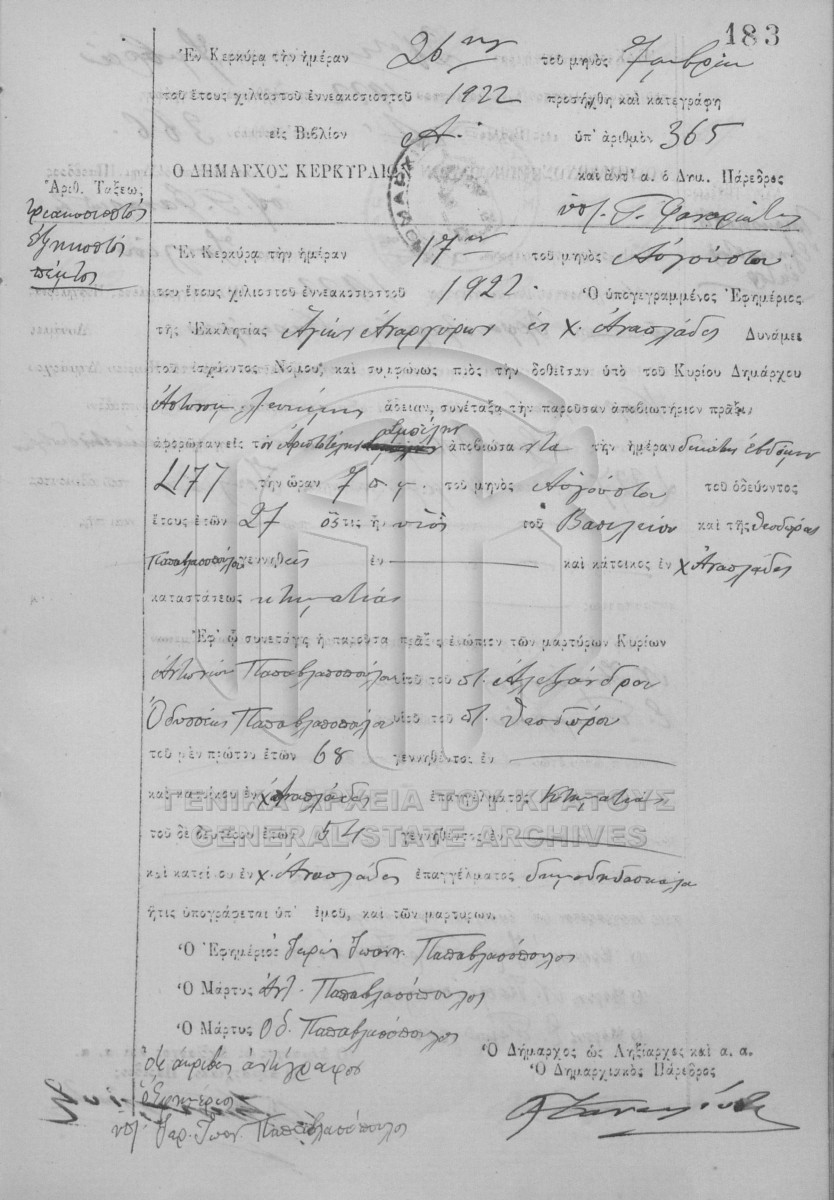 183
Ἐν Κερκύρᾳ τὴν ἡμέραν 26ην τοῦ μηνὸς 7μβρίου
τοῦ ἔτους χιλιοστοῦ ἐννεακοσιοστοῦ 1922 προσήχθη καὶ κατεγράφη
εἰς Βιβλίον Α. ὑπ' ἀριθμὸν 365
Ο ΔΗΜΑΡΧΟΣ ΚΕΡΚΥΡΑΙΩΝ καὶ ἀντ' α. ὁ Δημ. Πάρεδρος
Ἀριθ. Τάξεως
τριακοσιοστός
ἑξηκοστός
πέμπτος
ὑπ.
Ἐν Κερκύρᾳ τὴν ἡμέραν 17ην τοῦ μηνὸς Αὐγούστου
του ἔτους χιλιοστοῦ ἐννεακοσιοστοῦ 1922. Ὁ ὑπογεγραμμένος Ἐφημέριος
τῆς Ἐκκλησίας Ἁγίων Ἀναργύρων ἐν χ. Ἀναπλάδες Δυνάμει
τοῦ ἰσχύοντος Νόμου καὶ συμφώνως πρὸς τὴν δοθεῖσαν ὑπὸ τοῦ Κυρίου Δημάρχου
ἄδειαν, συνέταξα τὴν παροῦσαν ἀποβιωτήριον πρᾶξιν
ἀφορῶσαν εἰς τὸν Ἀριστοτέλην ἀποβιώσαντα τὴν ἡμέραν δεκάτην ἑβδόμην
L177 τὴν ὥραν 7 π.μ. τοῦ μηνὸς Αὐγούστου τοῦ ὁδεύοντος
ἔτους ἐτῶν 27 ὅστις ἦν υἱὸς τοῦ Βασιλείου καὶ τῆς Θεοδώρας
Παπαβλασοπούλου γεννηθεὶς ἐν καὶ κάτοικος ἐν χ Ἀναπλάδες
καταστάσεως κτηματίας
Ἐφ' ᾧ συνετάγη ἡ παροῦσα πρᾶξις ἐνώπιον τῶν μαρτύρων Κυρίων
Ἀντωνίου Παπαβλασοπούλου υἱοῦ τοῦ π. Ἀλεξάνδρου
Ὀδυσσέως Παπαβλασοπούλου υἱοῦ τοῦ π. Θεοδώρου
τοῦ μὲν πρώτου ἐτῶν 68 γεννηθέντος ἐν
καὶ κατοίκου ἐν χ Ἀναπλάδες ἐπαγγέλματος κτηματίας
ΓΕΝΙΚΑ ΑΡΧΕΙΑ ΤΟΥ ΚΡΑΤΟΥΣ
τοῦ δὲ δευτέρου ἐτῶν 54 γεννηθέντος ἐν
GENERAL STATE ARCHIVES
καὶ κατοίκου ἐν χ. Ἀναπλάδες ἐπαγγέλματος δημοδιδασκάλου
ἥτις ὑπογράφεται ὑπ' ἐμοῦ, καὶ τῶν μαρτύρων.
Ὁ Ἐφημέριος Ἱερεὺς Ἰωάν. Παπαβλασόπουλος
Ὁ Μάρτυς Ἀντ. Παπαβλασόπουλος
Ὁ Μάρτυς Ὀδ. Παπαβλασόπουλος
Ὅτι ἀκριβὲς ἀντίγραφον
ὁ Ἐφημέριος
ὑπ. Ἱερ. Ἰωάν. Παπαβλασόπουλος
Ὁ Δήμαρχος ὡς Ληξίαρχος καὶ α. α.
Ὁ Δημαρχιακὸς Πάρεδρος